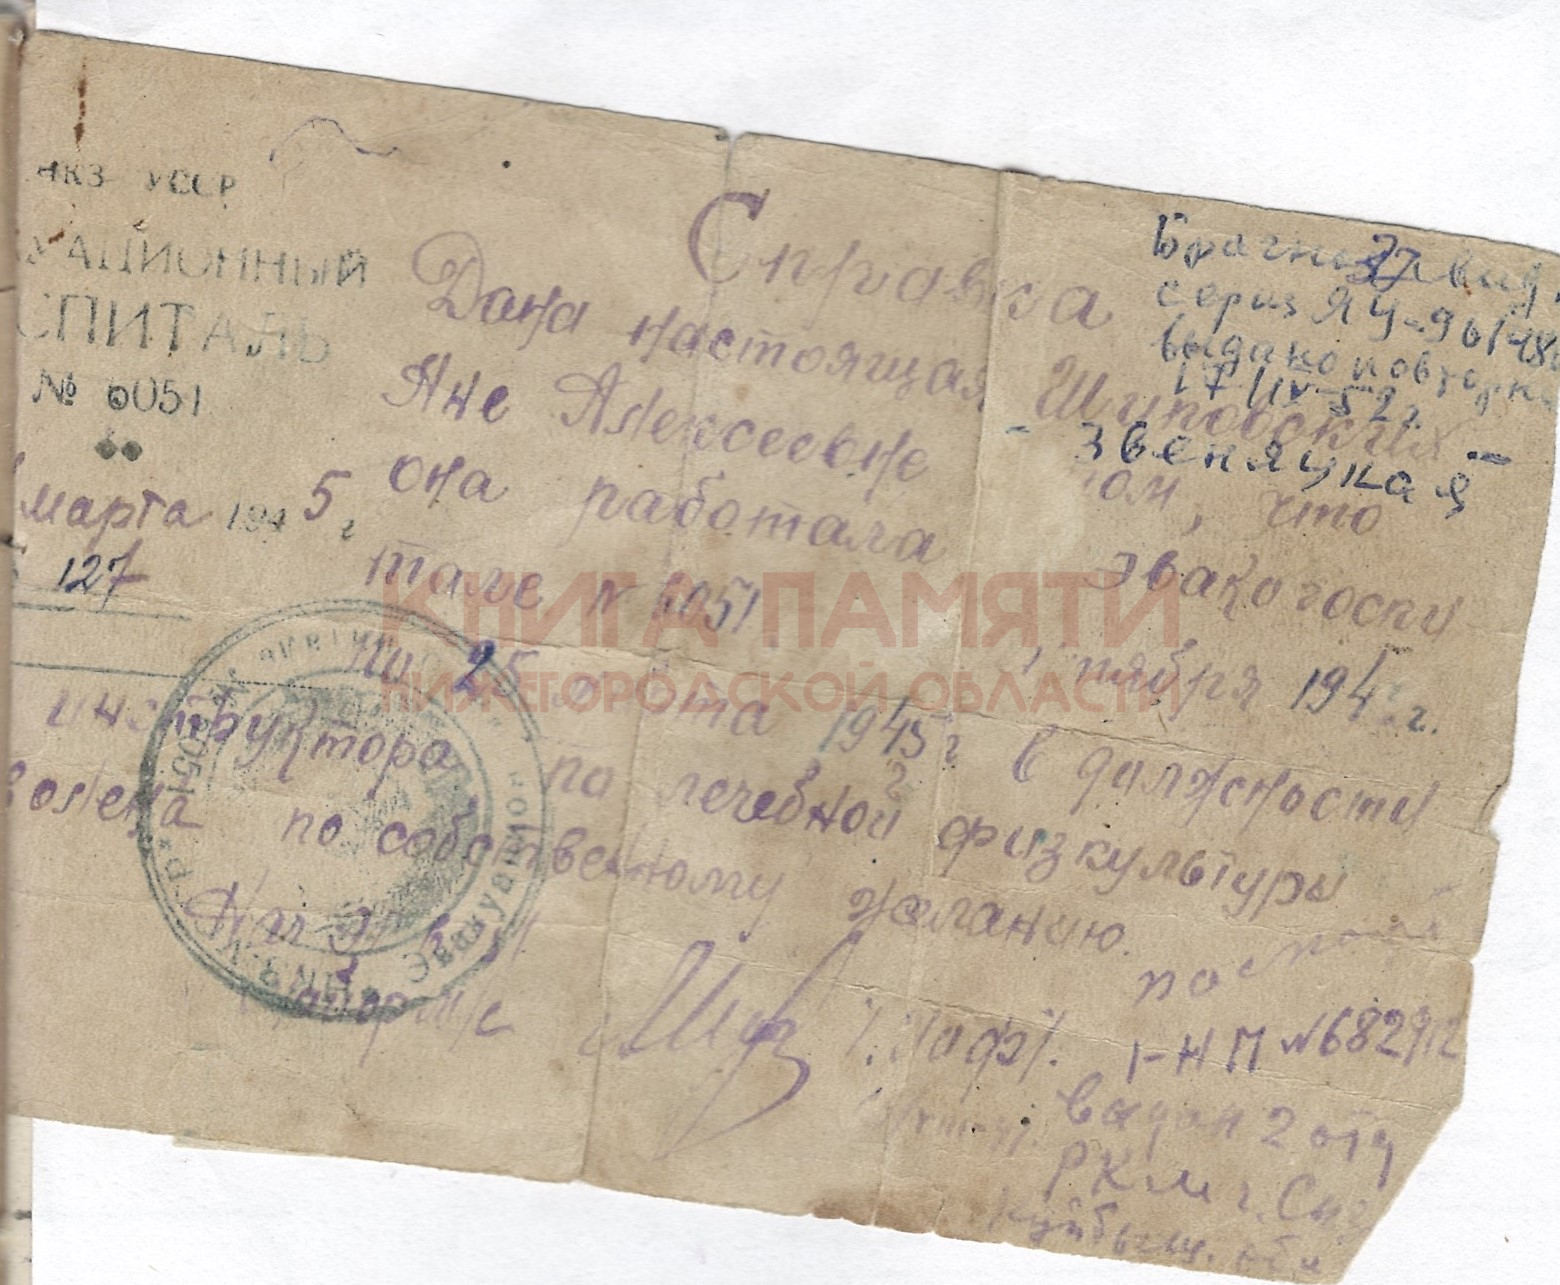 НКЗ УССР
УАЦИОННЫЙ
СПИТАЛЬ
№ 6051
марта 1945 г
127
Справка
Дана настоящая Шиповских
Яне Алексеевне том, что
она работала эвакогоспи
тале N 6051 ября 194 г.
по 25 та 1945 г в должности
инструктора по лечебной физкультуры
волена по собственному желанию.
Брачное свид.
серия ЯУ-96/48
выдано повторн
17/IV-52 г
- Звеняцкая -
паспорт
I-НП №682912
выдан 2 отд
РКМ г.
Куйбыш. обл
КНИГА ПАМЯТИ
НИЖЕГОРОДСКОЙ ОБЛАСТИ